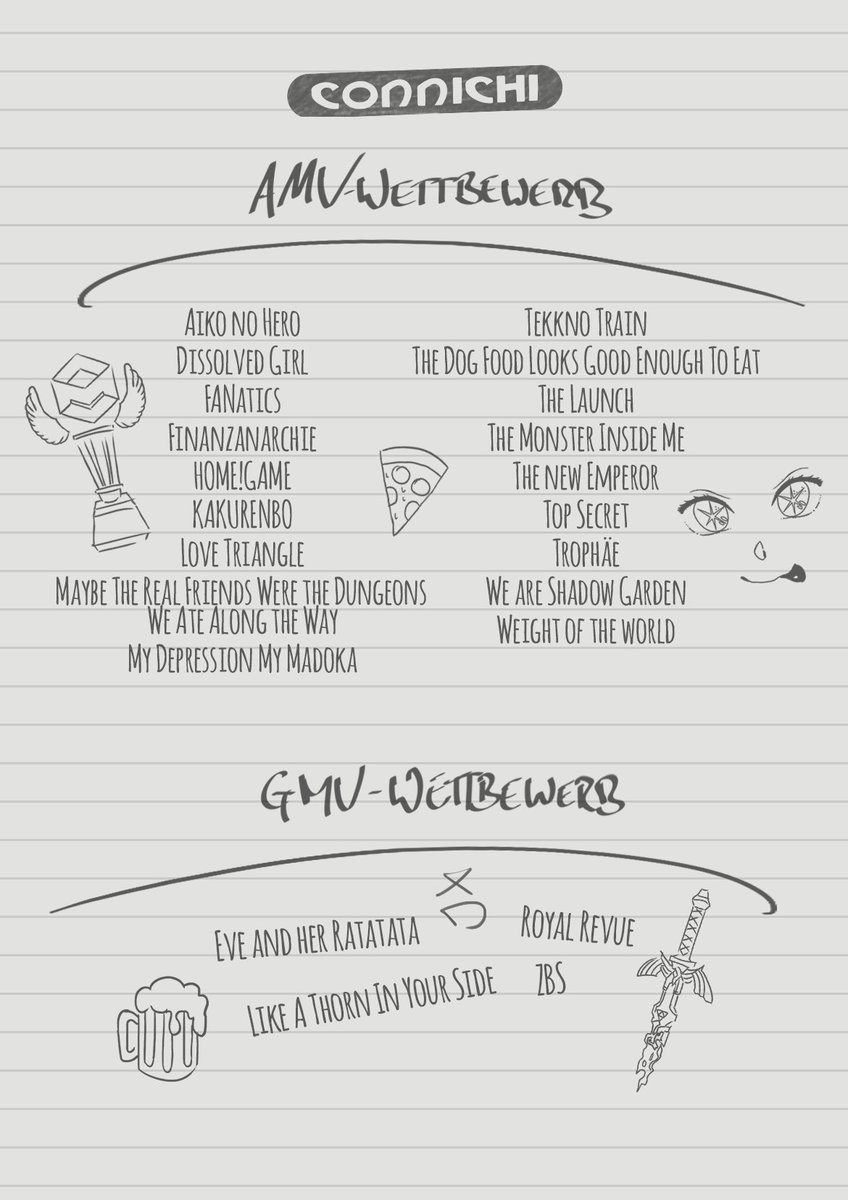 CONNICHI
AMV-WETTBEWERB
AIKO NO HERO
DISSOLVED GIRL
FANATICS
FINANZANARCHIE
HOME!GAME
KAKURENBO
LOVE TRIANGLE
MAYBE THE REAL FRIENDS WERE THE DUNGEONS
WE ATE ALONG THE WAY
MY DEPRESSION MY MADOKA
TEKKNO TRAIN
THE DOG FOOD LOOKS GOOD ENOUGH TO EAT
THE LAUNCH
THE MONSTER INSIDE ME
THE NEW EMPEROR
TOP SECRET
TROPHÄE
WE ARE SHADOW GARDEN
WEIGHT OF THE WORLD
GMV-WETTBEWERB
XD
EVE AND HER RATATATA
LIKE A THORN IN YOUR SIDE
ROYAL REVUE
ZBS